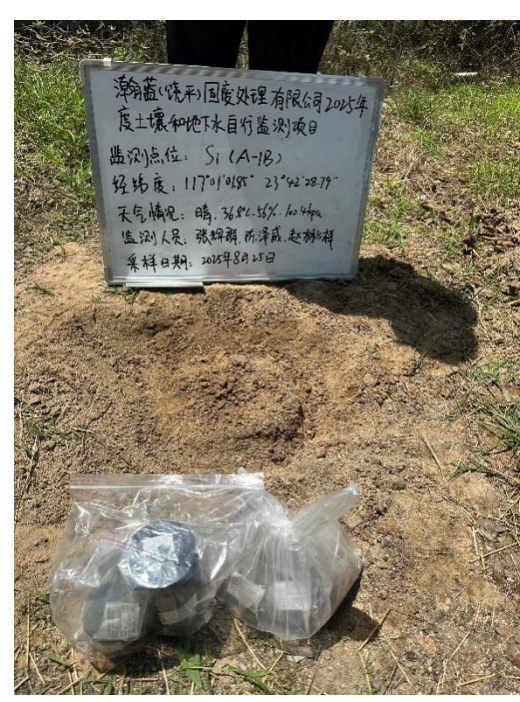 瀚蓝(饶平)固废处理有限公司2025年
度土壤和地下水自行监测项目
监测点位: S1 (A-1B)
经纬度: 117°01'01.85" 23°42'28.79"
天气情况: 晴. 36.8℃. 56%. 100.4kpa
监测人员: 张辉群, 陈泽威, 赵
采样日期: 2025年8月25日